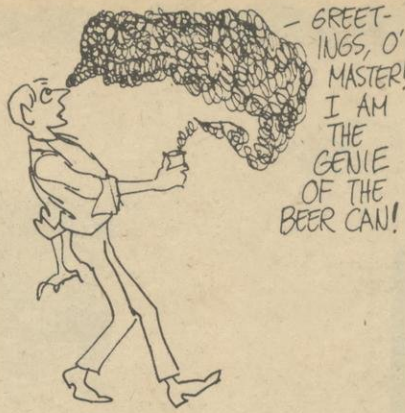 – GREET-
INGS, O'
MASTER!
I AM
THE
GENIE
OF THE
BEER CAN!